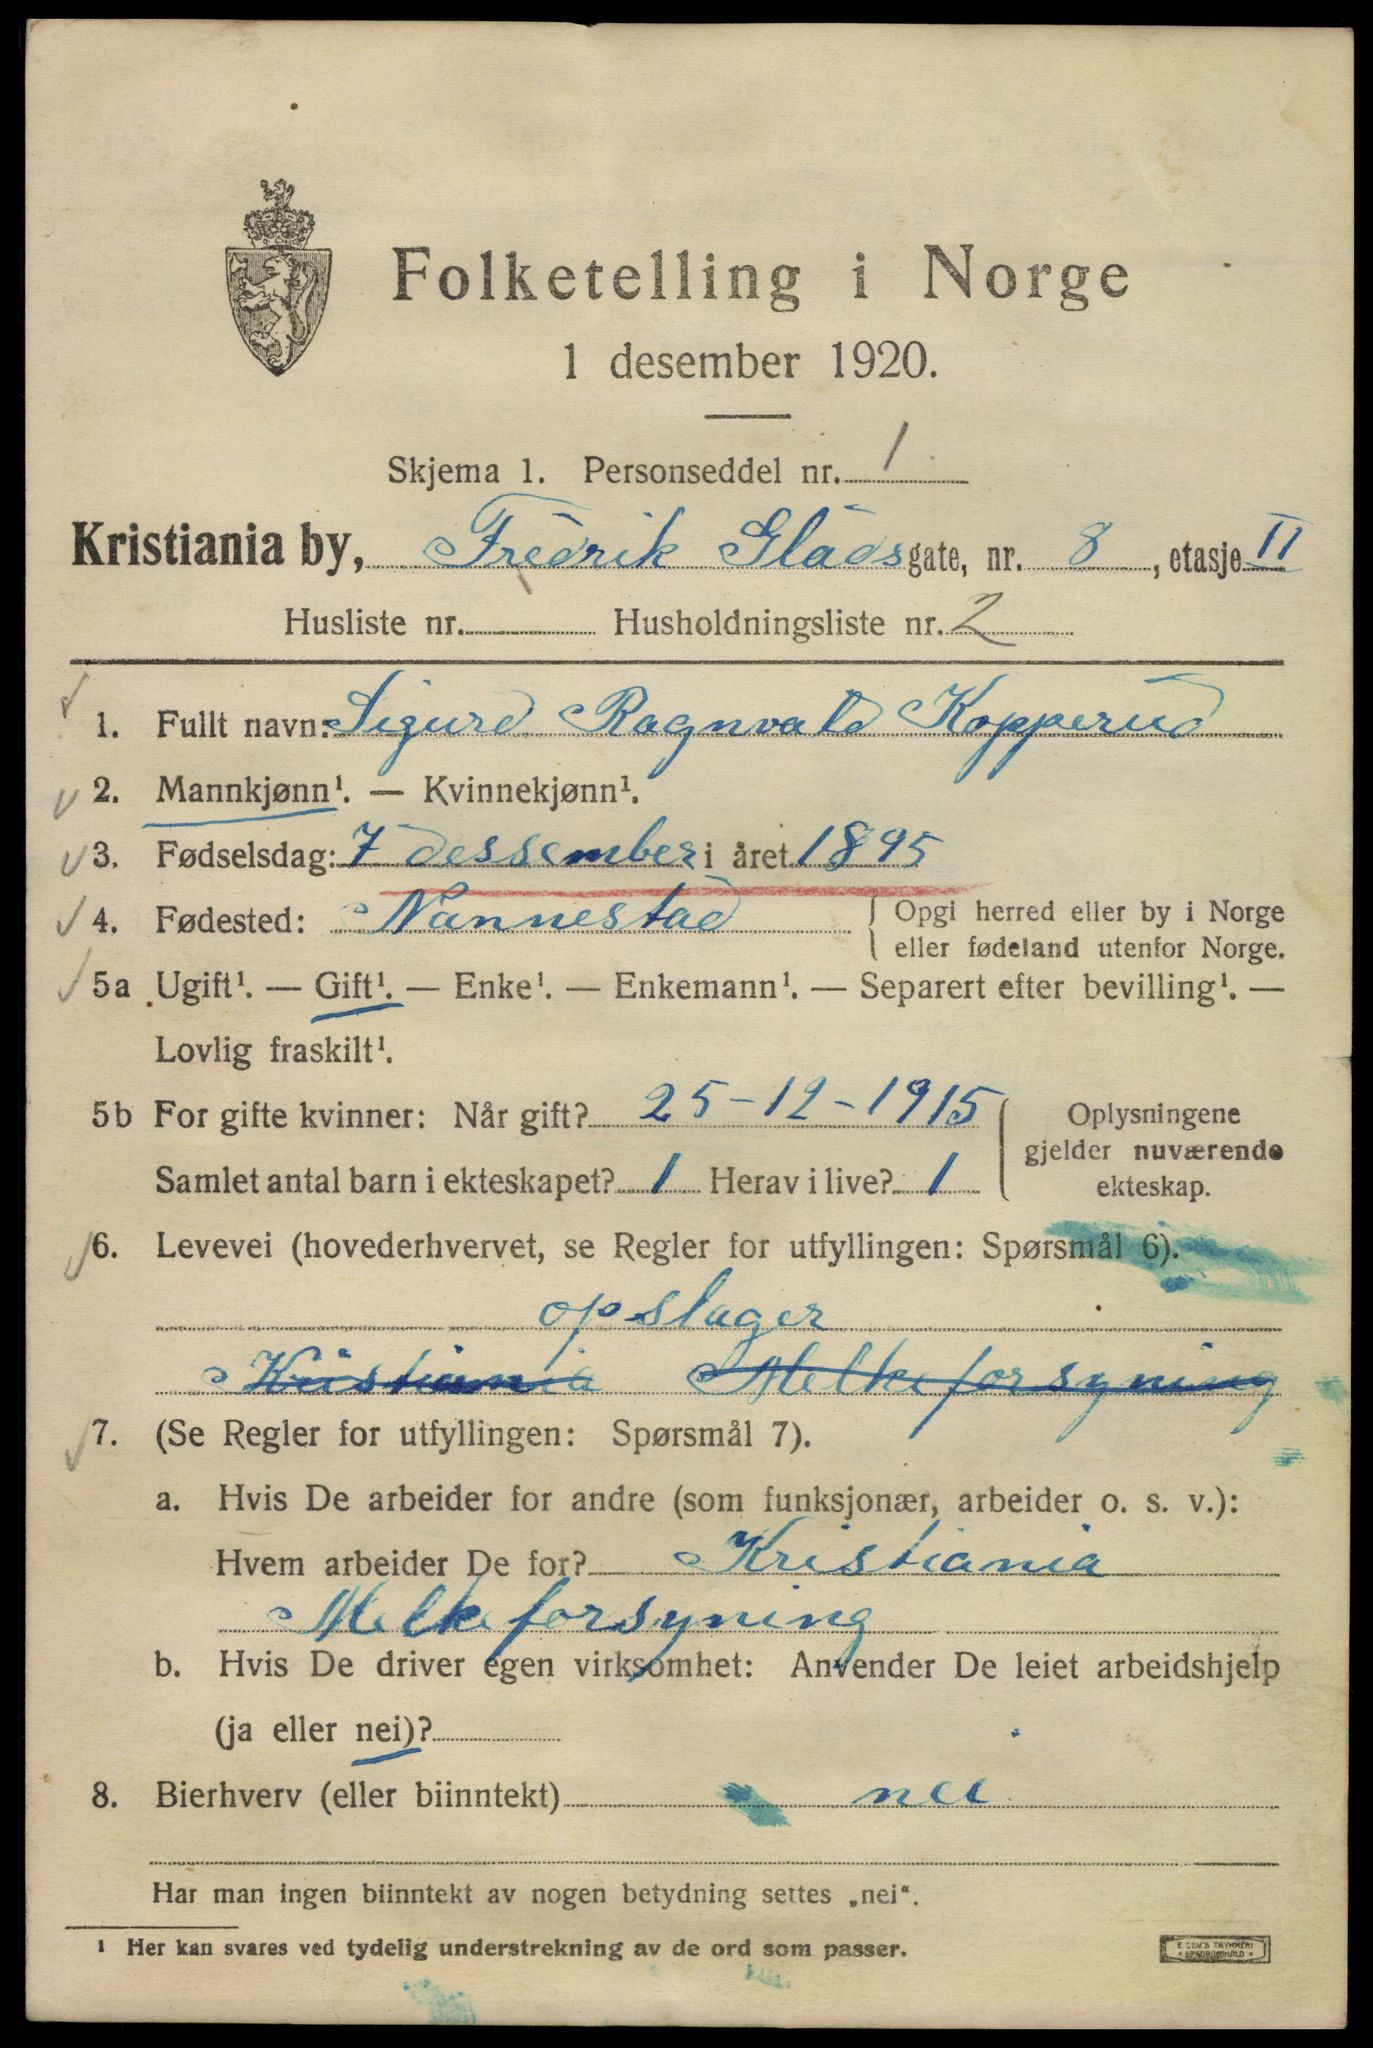 Folketelling i Norge
1 desember 1920.
Skjema 1. Personseddel nr. 1
Kristiania by, Fredrik Glads gate, nr. 8, etasje II
Husliste nr. Husholdningsliste nr. 2
1. Fullt navn: Sigurd Ragnvald Kopperud
2. Mannkjønn¹. — Kvinnekjønn¹.
3. Fødselsdag: 7 dessember i året 1895
4. Fødested: Nannestad { Opgi herred eller by i Norge
eller fødeland utenfor Norge.
5a Ugift¹. — Gift¹. — Enke¹. — Enkemann¹. — Separert efter bevilling¹. —
Lovlig fraskilt¹.
5b For gifte kvinner: Når gift? 25-12-1915
Samlet antal barn i ekteskapet? 1 Herav i live? 1
Oplysningene
gjelder nuværende
ekteskap.
6. Levevei (hovederhvervet, se Regler for utfyllingen: Spørsmål 6).
opslager
Kristiania Melkeforsyning
7. (Se Regler for utfyllingen: Spørsmål 7).
a. Hvis De arbeider for andre (som funksjonær, arbeider o. s. v.):
Hvem arbeider De for? Kristiania
Melkeforsyning
b. Hvis De driver egen virksomhet: Anvender De leiet arbeidshjelp
(ja eller nei)?
8. Bierhverv (eller biinntekt) nei
Har man ingen biinntekt av nogen betydning settes „nei“.
¹ Her kan svares ved tydelig understrekning av de ord som passer.